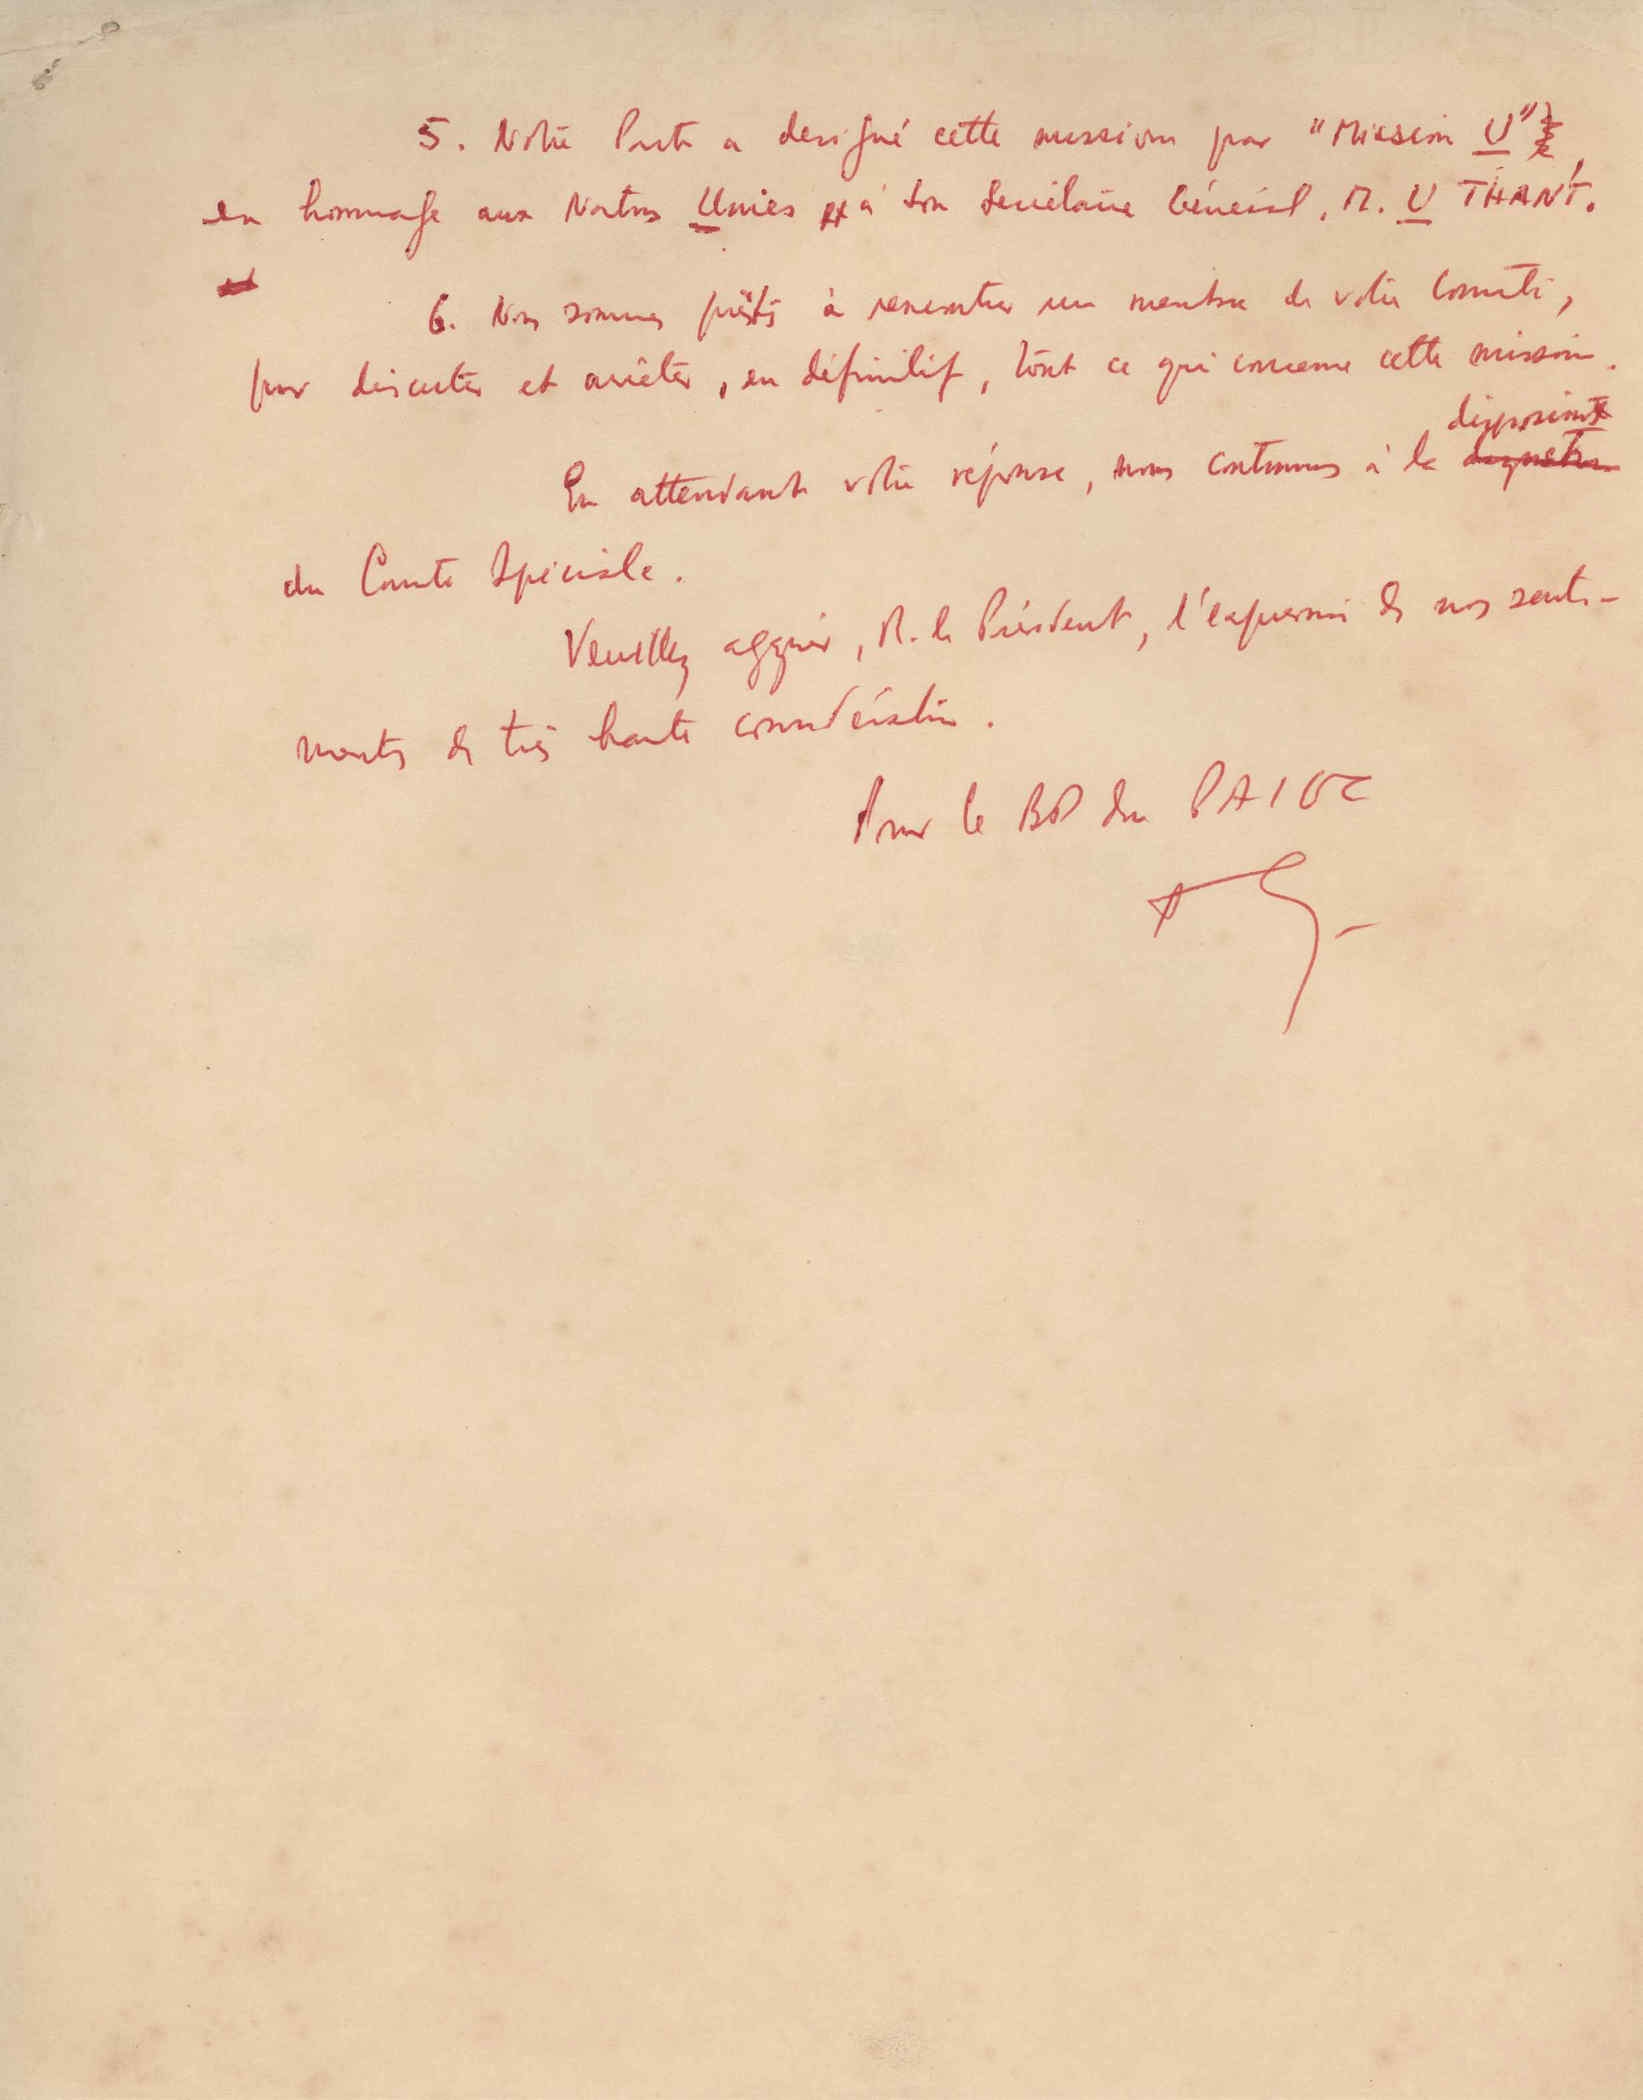 5. Notre Parti a designé cette mission par "Mission U",
en hommage aux Nations Unies et à son Secrétaire Général, M. U THANT.
6. Nous sommes prêts à rencontrer un membre de votre Comité,
pour discuter et arrêter, en définitif, tout ce qui concerne cette mission.
disposition
En attendant votre réponse, nous continuons à la
du Comité Spéciale.
Veuillez aggréer, M. le Président, l'expression de nos senti-
ments de très haute considération.
Pour le BP du PAIGC